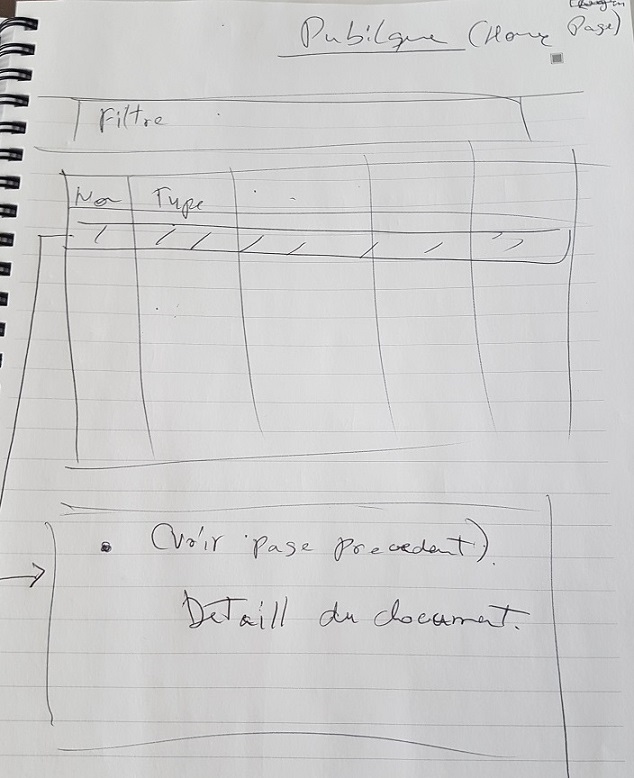 Pubilque (Home Page)
Filtre
Nom Type
(Voir page precedent).
Detaill du document.